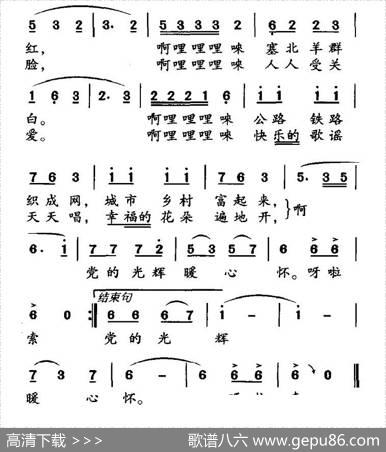 5 3 2 | 3. 2 | 5 3 3 3 2 | 6 2 2 3 |
红， 啊哩哩哩唻 塞北羊群
脸， 啊哩哩哩唻 人人受关
1 6 3 | 2. 3 | 2 2 2 1 6 | i i | i i |
白。 啊哩哩哩唻 公路 铁路
爱。 啊哩哩哩唻 快乐的 歌谣
7 6 3 | i i | i i | 7 6 3 | 5. 3 5 |
织成网， 城市 乡村 富起来，
天天唱， 幸福的 花朵 遍地开， } 啊
6. i | 7 7 7 2 | 5 3 5 7 | 6 6 6 |
党的光辉 暖 心 怀。呀啦
结束句
6 0 :| 6 6 6 7 | i - | i - |
索 党的光 辉
7 3 7 | 6 - | 6 6 6 | 6 0 ‖
暖 心 怀。
高清下载 >>>
歌谱八六 www.gepu86.com